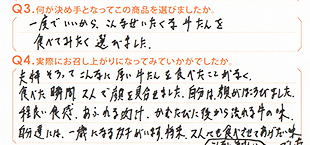 Q3.何が決め手となってこの商品を選びましたか。
一度でいいから、こんなぜいたくな牛たんを
食べてみたく選びました。
Q4.実際にお召し上がりになってみていかがでしたか。
夫婦そろってこんなに厚い牛たんを食べたことがなく、
食べた瞬間、2人で顔を見合せました。自分は、顔がほころびました。
程良い食感、あふれる肉汁、かむたびに後から流れる牛の味。
自分達には、一歳になる子がいます。将来、2人にも食べさせてあげたい味
でした